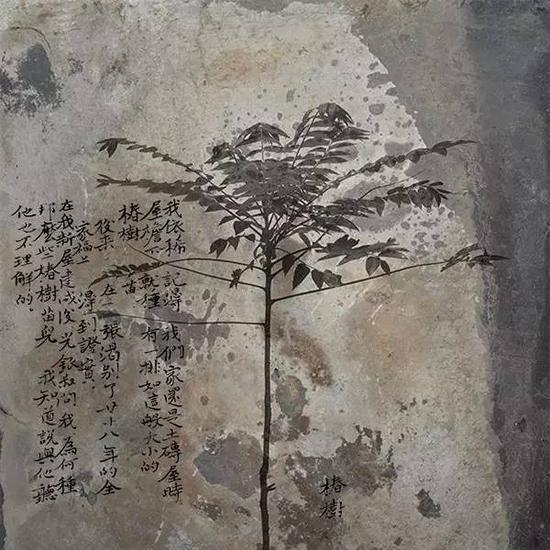 我依稀記得我們家還是土磚屋時
屋檐下就種有一排如這般大小的
椿樹苗
後来在一張濶别了廿十八年的全
家福上得到證實。
在我新屋建成後光銀叔问我為何種
那麽些椿樹苗兒我知道說與他聽
他也不理解的。
椿樹